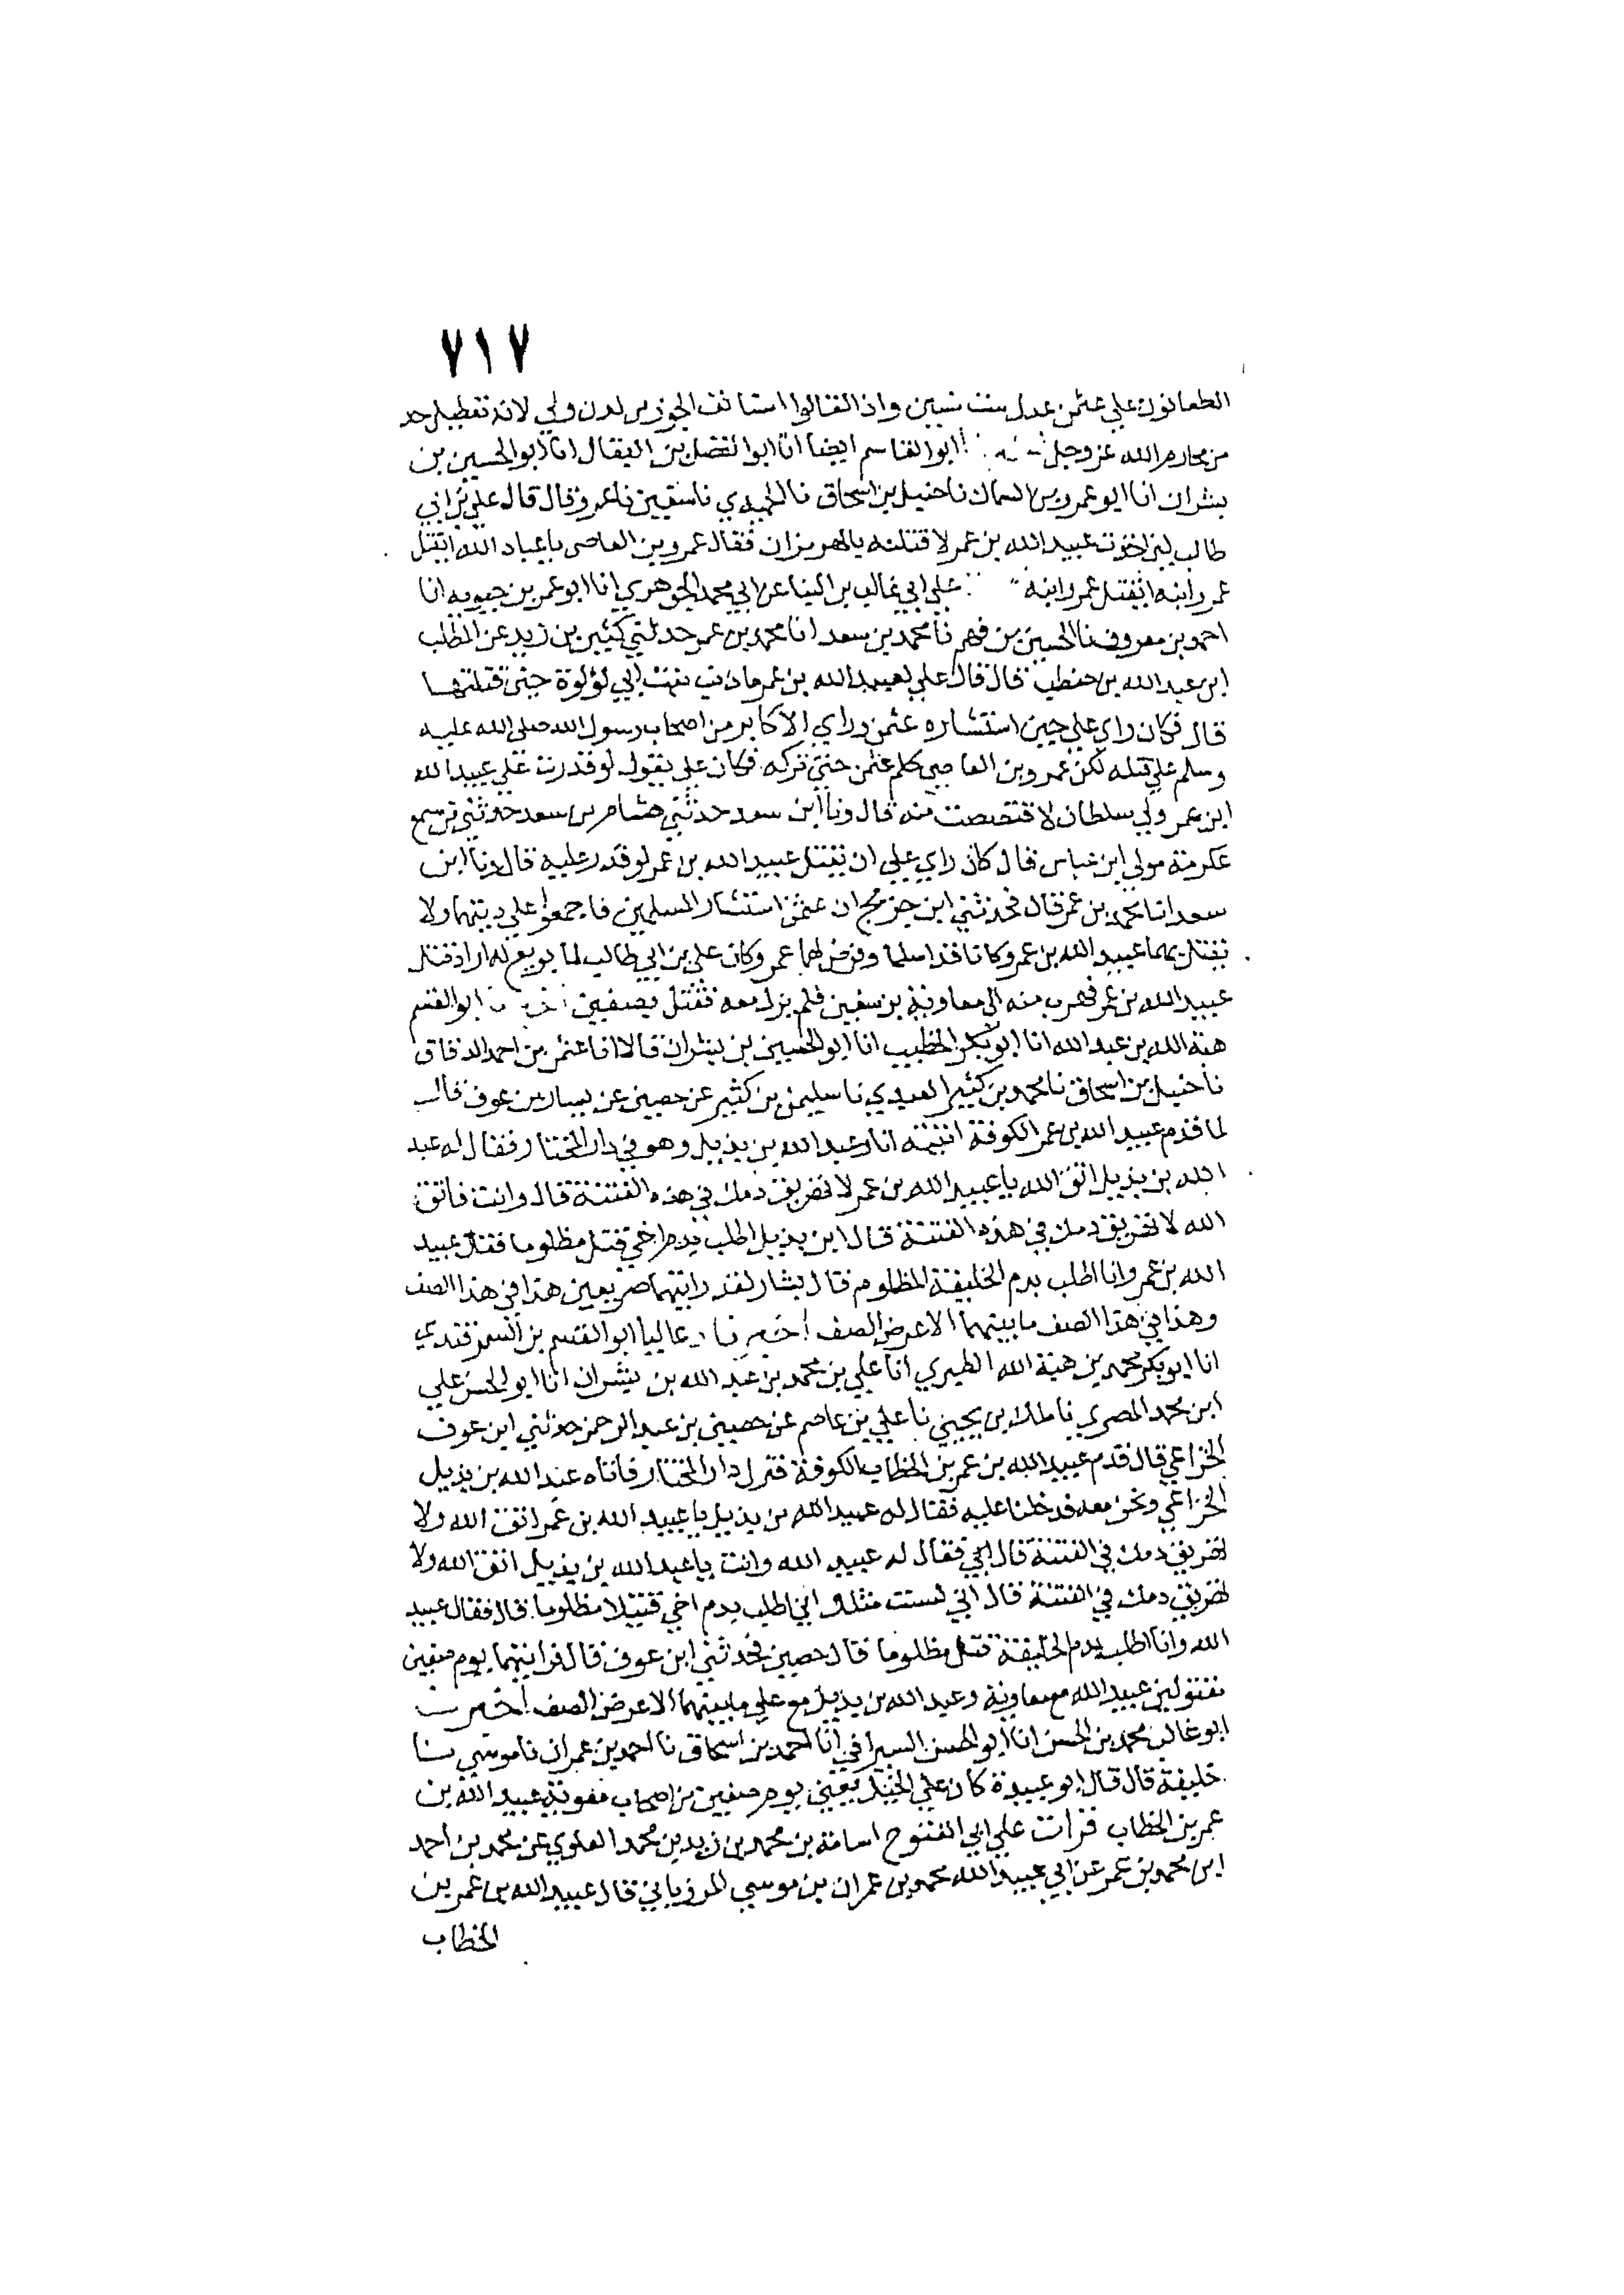 ٧١٧
الطعانون علي عثمن عدل ست سنين واذا لقالوا استانف الجور من لدن ولي لانه تعطيل حد
من محارم الله عز وجل ابو القاسم ايضا انا ابو الفضل بن البقال انا ابو الحسين بن
بشران انا ابو عمرو بن السماك نا حنبل بن اسحاق نا الحميدي نا سفين نا عمرو قال قال علي بن ابي
طالب لين اخذت عبيد الله بن عمر لاقتلنه بالهرمزان فقال عمرو بن العاصي يا عباد الله ايقتل
عمر وابنه ايقتل عمر وابنه علي ابي غالب بن البنا عن ابي محمد الجوهري انا ابو عمر بن حيويه انا
احمد بن معروف نا الحسين بن فهم نا محمد بن سعد انا محمد بن عمر حدثني كثير بن زيد عن المطلب
ابن عبد الله بن حنطب قال قال علي لعبيد الله بن عمر ما ذنب بنت ابي لؤلؤة حين قتلتها
قال فكان راي علي حين استشاره عثمن وراي الاكابر من اصحاب رسول الله صلى الله عليه
وسلم علي قتله لكن عمرو بن العاصي كلم عثمن حتي تركه فكان علي يقول لو قدرت علي عبيد الله
ابن عمر ولي سلطان لاقتصصت منه قال ونا ابن سعد حدثني هشام بن سعد حدثني من سمع
عكرمة مولي ابن عباس قال كان راي علي ان يقتل عبيد الله بن عمر لو قدر عليه قال ونا ابن
سعد انا محمد بن عمر قال فحدثني ابن جريج ان عثمن استشار المسلمين فاجمعوا علي ديتهما ولا
يقتل بهما عبيد الله بن عمر وكانا قد اسلما وفرض لهما عمر وكان علي بن ابي طالب لما بويع له اراد قتل
عبيد الله بن عمر فهرب منه الي معاوية بن سفين فلم يزل معه فقتل بصفين ابو القسم
هبة الله بن عبد الله انا ابو بكر الخطيب انا ابو الحسين بن بشران قالا انا عثمن بن احمد الدقاق
نا حنبل بن اسحاق نا محمد بن كثير العبدي نا سليمن بن كثير عن حصين عن يسار بن عوف قال
لما قدم عبيد الله بن عمر الكوفة اتيته انا وعبد الله بن بديل وهو في دار المختار فقال له عبد
الله بن بديل اتق الله يا عبيد الله بن عمر لا تهريق دمك في هذه الفتنة قال وانت فاتق
الله لا تهريق دمك في هذه الفتنة قال ابن بديل اطلب بدم اخي قتل مظلوما فقال عبيد
الله بن عمر وانا اطلب بدم الخليفة المظلوم قال بشار لقد رايتهما صريعين هذا في هذا الصف
وهذا في هذا الصف ما بينهما الا عرض الصف اخبرنا عاليا ابو القسم بن السمرقندي
انا ابو بكر محمد بن هبة الله الطبري انا علي بن محمد بن عبد الله بن بشران انا ابو الحسن علي
ابن محمد المصري نا ملك بن يحيي نا علي بن عاصم عن حصين بن عبد الرحمن حدثني ابن عوف
الخزاعي قال قدم عبيد الله بن عمر بن الخطاب الكوفة فنزل دار المختار فاتاه عبد الله بن بديل
الخزاعي ونحن معه فدخلنا عليه فقال له عبيد الله بن بديل يا عبيد الله بن عمر اتق الله ولا
تهريق دمك في الفتنة قال ابي فقال له عبيد الله وانت يا عبد الله بن بديل اتق الله ولا
تهريق دمك في الفتنة قال اني لست مثلك اني اطلب بدم اخي قتيلا مظلوما قال فقال عبيد
الله وانا اطلب بدم الخليفة قتل مظلوما قال حصين فحدثني ابن عوف قال فرايتهما يوم صفين
مقتولين عبيد الله مع معاوية وعبد الله بن بديل مع علي ما بينهما الا عرض الصف اخبرنا
ابو غالب محمد بن الحسن انا ابو الحسن السيرافي انا احمد بن اسحاق نا احمد بن عمران نا موسي نا
خليفة قال قال ابو عبيدة كان علي الخيل يعني يوم صفين من اصحاب معوية عبيد الله بن
عمر بن الخطاب قرات علي ابي الفتوح اسامة بن محمد بن زيد بن محمد العلوي عن محمد بن احمد
ابن محمد بن عمر عن ابي عبيد الله محمد بن عمران بن موسي المرزباني قال عبيد الله بن عمر بن
الخطاب